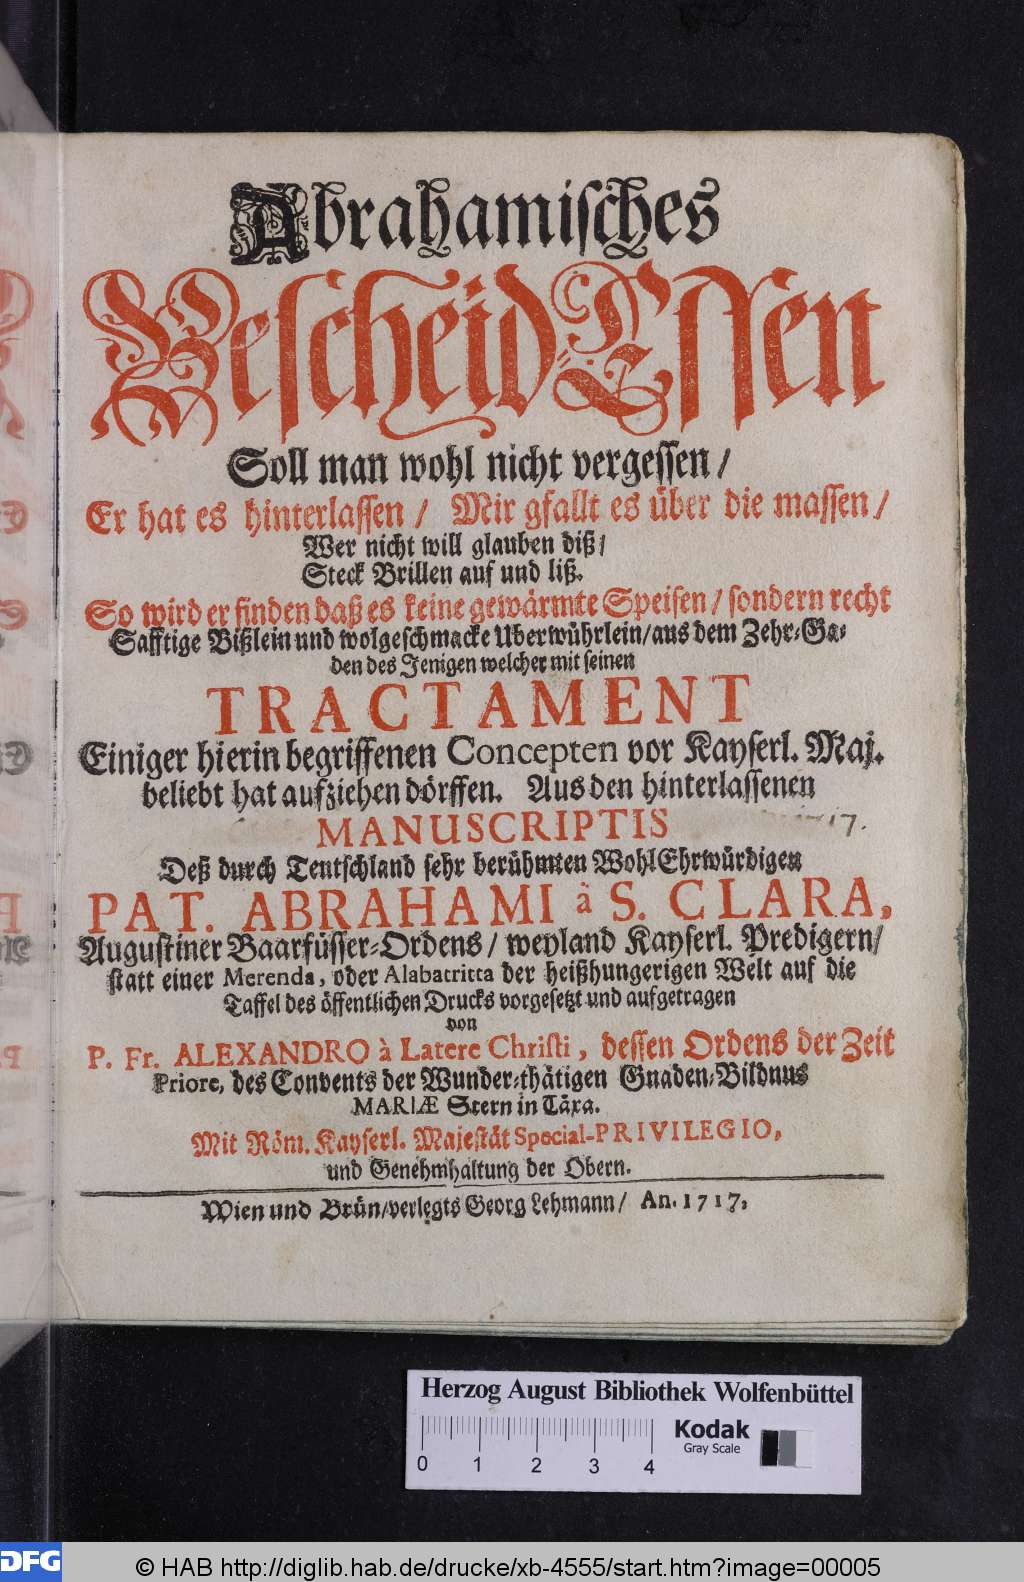 Abrahamisches
Bescheid Essen
Soll man wohl nicht vergessen /
Er hat es hinterlassen / Mir gfallt es über die massen /
Wer nicht will glauben diß /
Steck Brillen auf und liß.
So wird er finden daß es keine gewärmte Speisen / sondern recht
Safftige Bißlein und wolgeschmacke Uberwührlein / aus dem Zehr-Ga-
den des Jenigen welcher mit seinen
TRACTAMENT
Einiger hierin begriffenen Concepten vor Kayserl. Maj.
beliebt hat aufziehen dörffen. Aus den hinterlassenen
MANUSCRIPTIS
Deß durch Teutschland sehr berühmten WohlEhrwürdigen
PAT. ABRAHAMI à S. CLARA,
Augustiner Baarfüsser-Ordens / weyland Kayserl. Predigern /
statt einer Merenda, oder Alabatritta der heißhungerigen Welt auf die
Taffel des öffentlichen Drucks vorgesetzt und aufgetragen
von
P. Fr. ALEXANDRO à Latere Christi, dessen Ordens der Zeit
Priore, des Convents der Wunder-thätigen Gnaden-Bildnus
MARIÆ Stern in Täxa.
Mit Röm. Kayserl. Majestät Special-PRIVILEGIO,
und Genehmhaltung der Obern.
Wien und Brün / verlegts Georg Lehmann / An. 1717,
Herzog August Bibliothek Wolfenbüttel
0 1 2 3 4
Kodak
Gray Scale
DFG
© HAB http://diglib.hab.de/drucke/xb-4555/start.htm?image=00005